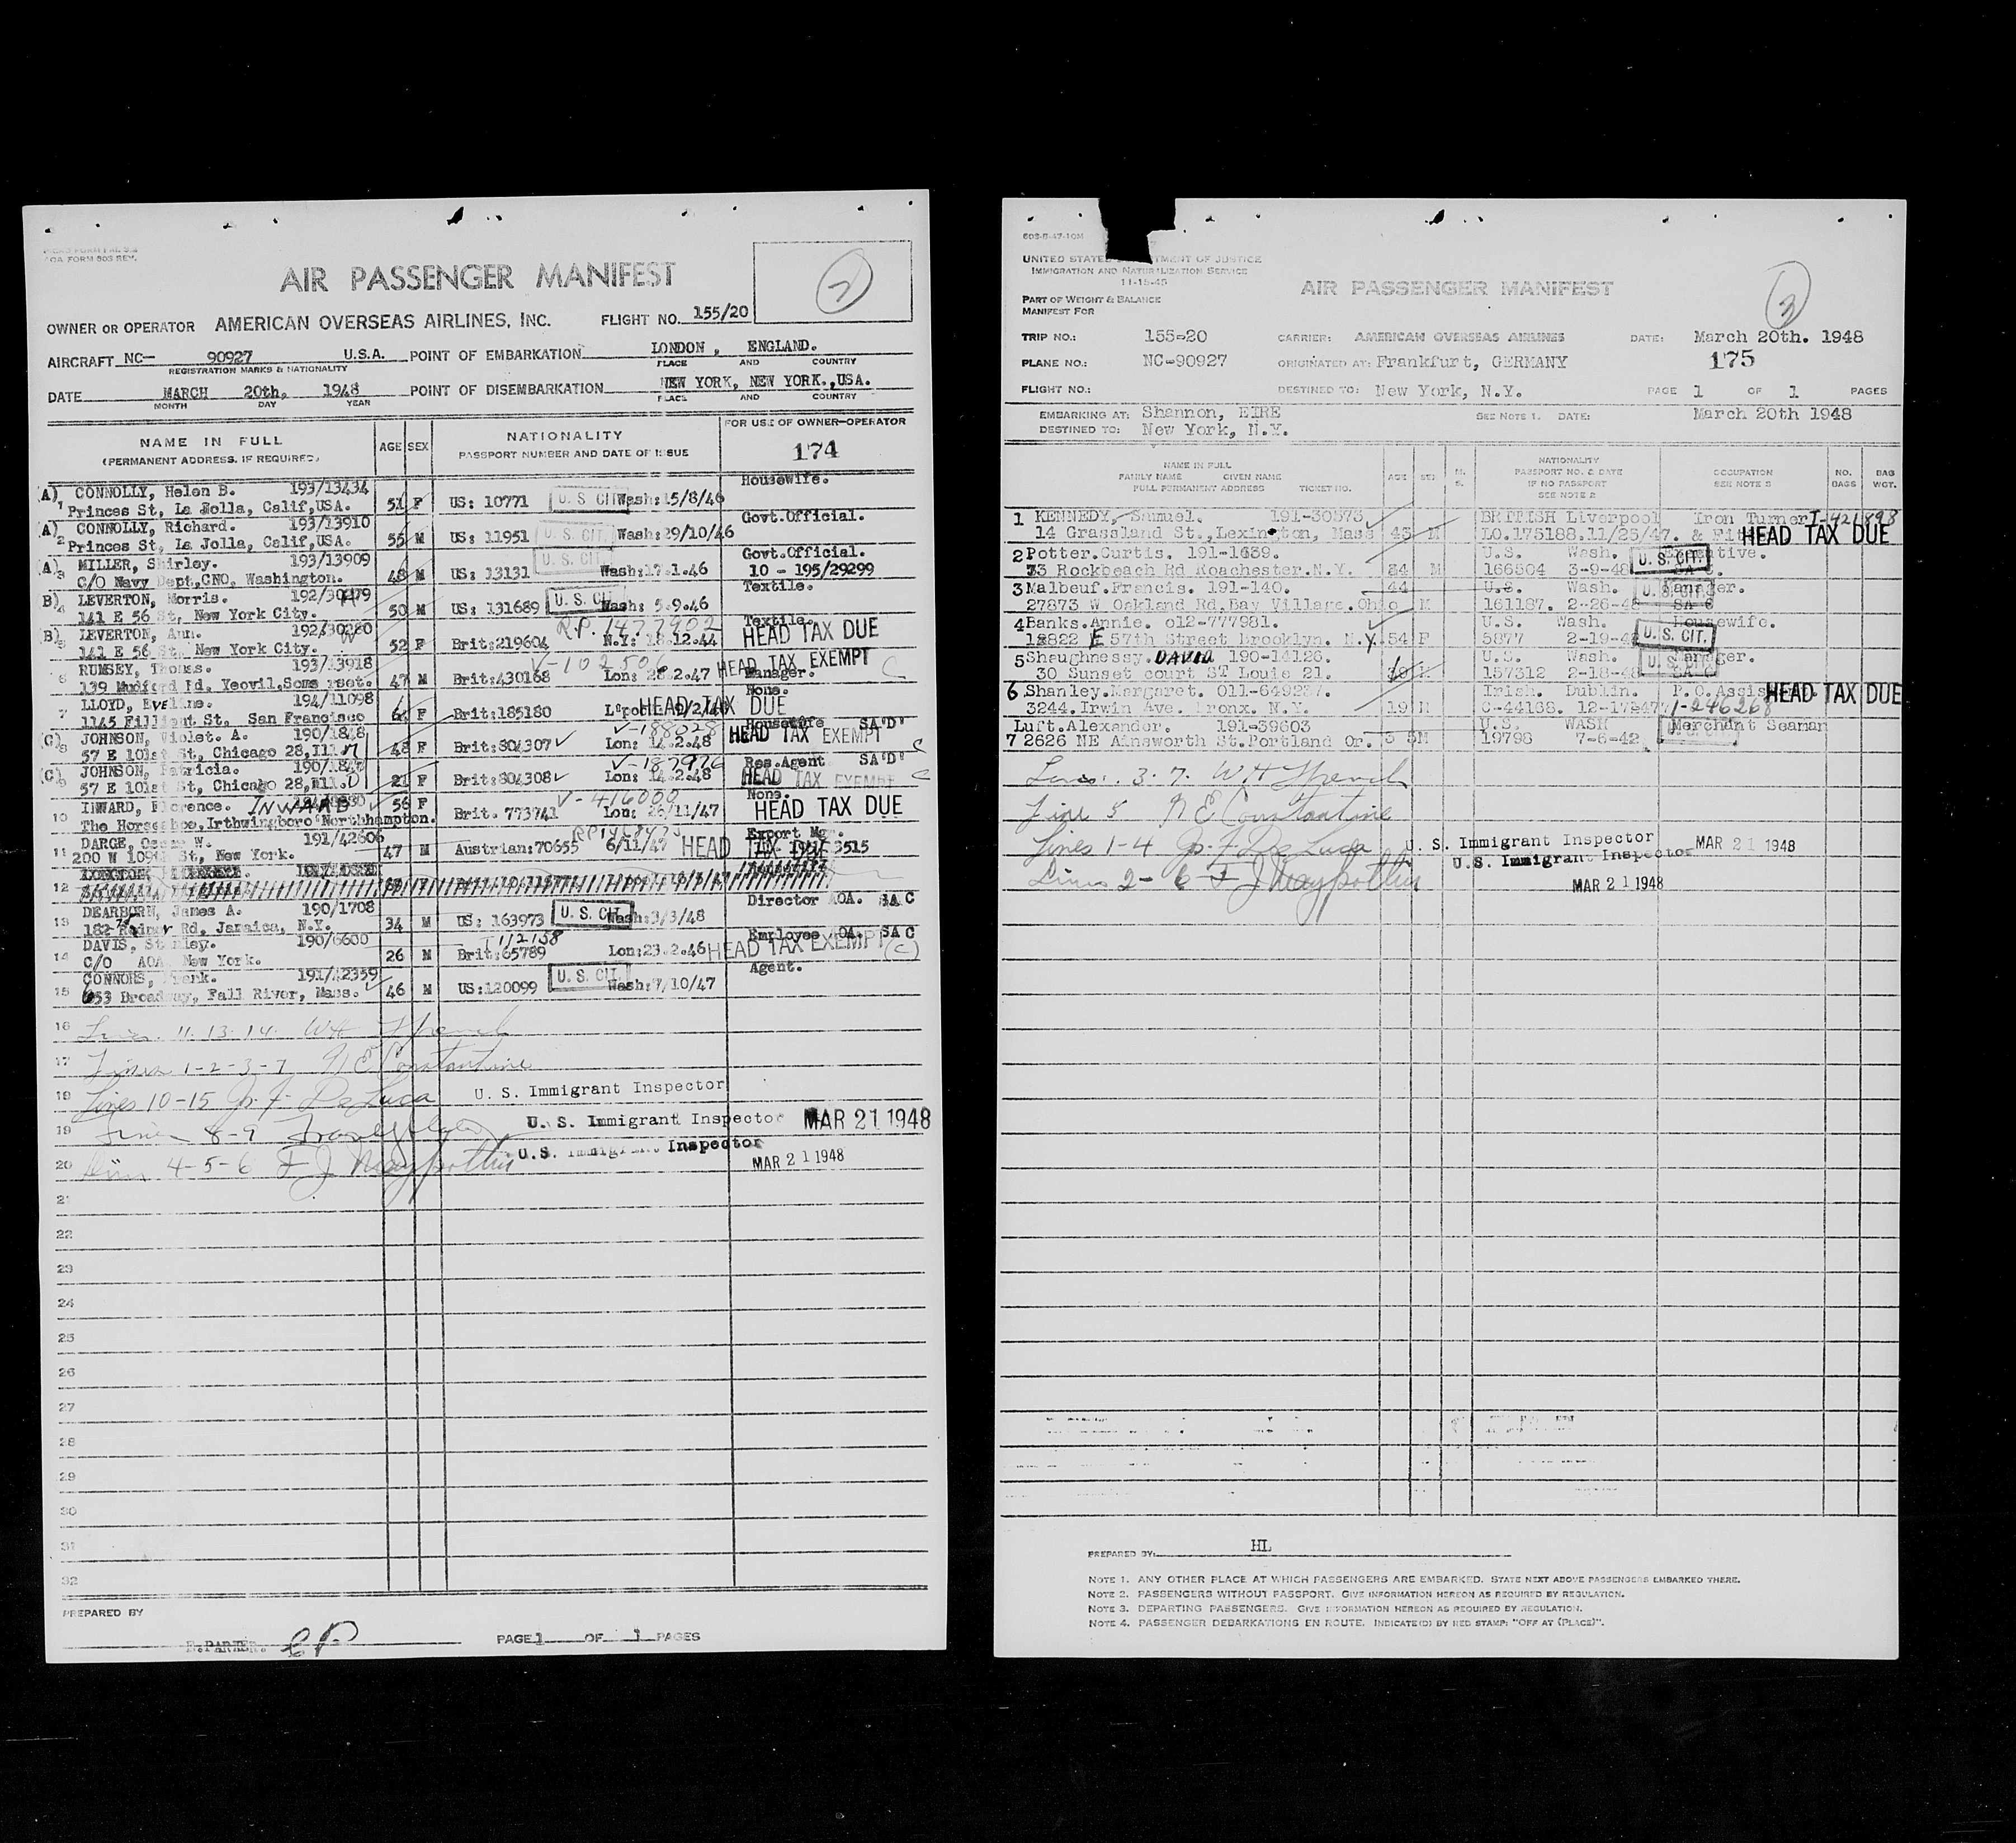 AOA FORM 803 REV.
AIR PASSENGER MANIFEST
2
OWNER OR OPERATOR AMERICAN OVERSEAS AIRLINES, INC. FLIGHT NO. 155/20
AIRCRAFT NC- 90927 U.S.A. POINT OF EMBARKATION LONDON, ENGLAND.
REGISTRATION MARKS & NATIONALITY PLACE AND COUNTRY
DATE MARCH 20th, 1948 POINT OF DISEMBARKATION NEW YORK, NEW YORK.,USA.
MONTH DAY YEAR PLACE AND COUNTRY
NAME IN FULL AGE SEX NATIONALITY FOR USE OF OWNER-OPERATOR
(PERMANENT ADDRESS, IF REQUIRED) PASSPORT NUMBER AND DATE OF ISSUE 174
(A) CONNOLLY, Helen B. 193/13434 Housewife.
1 Princes St, La Jolla, Calif,USA. 51 F US: 10771 U. S. CIT. Wash:15/8/46
(A) CONNOLLY, Richard. 193/13910 Govt.Official.
2 Princes St, La Jolla, Calif,USA. 55 M US: 11951 U. S. CIT. Wash:29/10/46
(A) MILLER, Shirley. 193/13909 Govt.Official.
3 C/O Navy Dept,CNO, Washington. 48 M US: 13131 U. S. CIT. Wash:17.1.46 10 - 195/29299
B) LEVERTON, Morris. 192/30279 Textile.
4 141 E 56 St, New York City. 50 M US: 131689 U. S. CIT. Wash: 5.9.46
B) LEVERTON, Ann. 192/30280 R.P. 1477902 Textile.
5 141 E 56 St, New York City. 52 F Brit:219604 N.Y: 18.12.44 HEAD TAX DUE
RUMSEY, Thomas. 193/13918 V-102506 HEAD TAX EXEMPT
6 139 Mudford Rd, Yeovil,Somerset. 47 M Brit:430168 Lon: 28.2.47 Manager. C
LLOYD, Eveline. 194/11098 None.
7 1145 Fillmont St, San Francisco F Brit:185180 L'pool HEAD TAX DUE
(C) JOHNSON, Violet. A. 190/1848 V-188028 Housewife SA'D'
8 57 E 101st St, Chicago 28,Ill 48 F Brit:804307 Lon: 14.2.48 HEAD TAX EXEMPT C
(C) JOHNSON, Patricia. V-187976 Res.Agent SA'D'
9 57 E 101st St, Chicago 28,Ill. 21 F Brit:804308 Lon: 14.2.48 HEAD TAX EXEMPT C
INWARD, Florence. INWARD 56 F V-416000 None.
10 The Horseshoe,Irthwingboro'Northhampton. Brit. 773741 Lon: 26/11/47 HEAD TAX DUE
DARGE, W. 191/42606 Export Mgr.
11 200 W 109th St, New York. 47 M Austrian:70655 6/11/47 HEAD TAX DUE
12
DEARBORN, James A. 190/1708 Director AOA. SA C
13 182- Rd, Jamaica, N.Y. 34 M US: 163973 U. S. CIT. Wash:3/3/48
DAVIS, Stanley. 190/6600 Employee AOA. SA C
14 C/O AOA New York. 26 M Brit:65789 Lon:23.2.46 HEAD TAX EXEMPT (C)
CONNORS, Frank. 191/42359 Agent.
15 653 Broadway, Fall River, Mass. 46 M US:120099 U. S. CIT. Wash:7/10/47
16 Lines. 11. 13. 14. W H French
17 Lines 1-2-3-7 N E Constantine
18 Lines 10-15 J. F. DeLuca U. S. Immigrant Inspector
19 Lines 8-9 U. S. Immigrant Inspector MAR 21 1948
20 Lines 4-5-6 F J U.S. Immigrant Inspector MAR 21 1948
21
22
23
24
25
26
27
28
29
30
31
32
PREPARED BY
E.PARKER. EP PAGE 1 OF 1 PAGES
803-8-47-10M
UNITED STATES DEPARTMENT OF JUSTICE
IMMIGRATION AND NATURALIZATION SERVICE
11-15-45
AIR PASSENGER MANIFEST
3
PART OF WEIGHT & BALANCE
MANIFEST FOR
TRIP NO.: 155-20 CARRIER: AMERICAN OVERSEAS AIRLINES DATE: March 20th. 1948
PLANE NO.: NC-90927 ORIGINATED AT: Frankfurt, GERMANY 175
FLIGHT NO.: DESTINED TO: New York, N.Y. PAGE 1 OF 1 PAGES
EMBARKING AT: Shannon, EIRE SEE NOTE 1. DATE: March 20th 1948
DESTINED TO: New York, N.Y.
NAME IN FULL
FAMILY NAME GIVEN NAME
FULL PERMANENT ADDRESS TICKET NO.
AGE SEX M. S.
NATIONALITY
PASSPORT NO. & DATE
IF NO PASSPORT
SEE NOTE 2
OCCUPATION
SEE NOTE 3
NO. BAGS BAG WGT.
1 KENNEDY, Samuel. 191-30573 BRITISH Liverpool Iron Turner I-421898
14 Grassland St.,Lexington, Mass 43 M LO.175188.11/25/47. & Fit HEAD TAX DUE
2 Potter.Curtis. 191-1639. U.S. Wash. Executive.
33 Rockbeach Rd Roachester.N.Y. 34 M 166504 3-9-48 U. S. CIT.
3 Malbeuf.Francis. 191-140. 44 U.S. Wash. Manager.
27873 W Oakland Rd.Bay Village.Ohio M 161187. 2-26-48 U. S. CIT. SA C
4 Banks.Annie. 012-777981. U.S. Wash. Housewife.
1822 E 57th Street Brooklyn. N.Y. 54 F 5877 2-19-48 U. S. CIT.
5 Shaughnessy. DAVID 190-14126. U.S. Wash. Manager.
30 Sunset court ST Louis 21. 157312 2-18-48 U. S. CIT.
6 Shanley.Margaret. 011-649237. Irish. Dublin. P.O.Assis HEAD TAX DUE
3244.Irwin Ave. Bronx. N.Y. 19 C-44168. 12-17-47 I-246268
Luft.Alexander. 191-39603 U.S. WASH Merchant Seaman
7 2626 NE Ainsworth St.Portland Or. 3 5 M 19798 7-6-42
Lines. 3. 7. W H French
Line 5 N E Constantine
Lines 1-4 J. F. DeLuca U. S. Immigrant Inspector MAR 21 1948
Lines 2-6 F J U.S. Immigrant Inspector
MAR 21 1948
PREPARED BY: HL
NOTE 1. ANY OTHER PLACE AT WHICH PASSENGERS ARE EMBARKED. STATE NEXT ABOVE PASSENGERS EMBARKED THERE.
NOTE 2. PASSENGERS WITHOUT PASSPORT. GIVE INFORMATION HEREON AS REQUIRED BY REGULATION.
NOTE 3. DEPARTING PASSENGERS. GIVE INFORMATION HEREON AS REQUIRED BY REGULATION.
NOTE 4. PASSENGER DEBARKATIONS EN ROUTE. INDICATE(D) BY RED STAMP: "OFF AT (PLACE)".